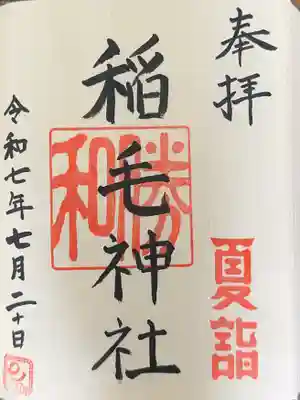 奉拝
夏詣
稲毛神社
勝和
令和七年七月二十日